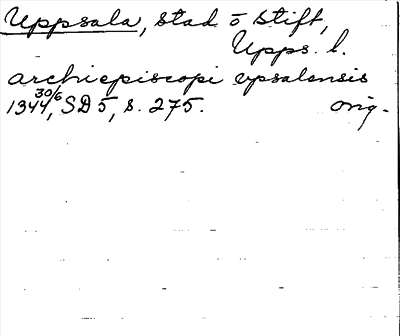 Uppsala, stad o stift,
Upps. l.
archiepiscopi vpsalensis
1344 30/6, SD 5, s. 275. orig.